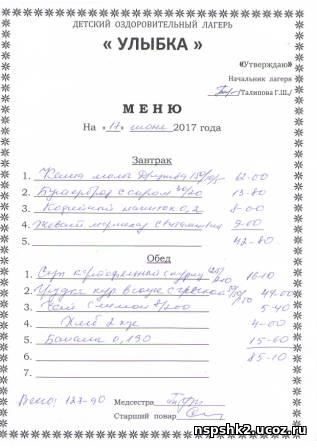 ДЕТСКИЙ ОЗДОРОВИТЕЛЬНЫЙ ЛАГЕРЬ
« УЛЫБКА »
«Утверждаю»
Начальник лагеря
/Талипова Г.Ш./
МЕНЮ
На «17» июня 2017 года
Завтрак
1. Каша молоч Дружба 12-00
2. Бутерброд с сыром 30/20 13-80
3. Кофейный напиток 0,2 8-00
4. 9-00
5. 42-80
Обед
1. Суп картофельный с 16-10
2. Грудка кур в соусе с гречкой 44-00
3. Чай с лимон 5-40
4. Хлеб 2 кус 4-00
5. Бананы 0,190 15-60
6. 85-10
7.
Всего: 127-90
Медсестра
Старший повар
nspshk2.ucoz.ru